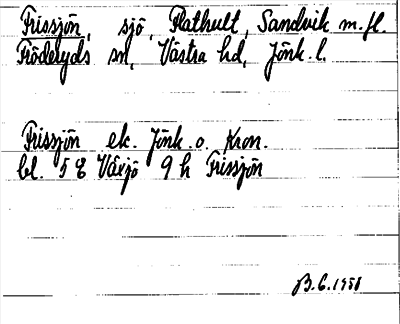 Frissjön, sjö, Flathult, Sandvik m.fl.
Fröderyds sn, Västra hd, Jönk. l.
Frissjön ek. Jönk. o. Kron.
bl. 5 E Växjö 9 h Frissjön
B.E. 1958